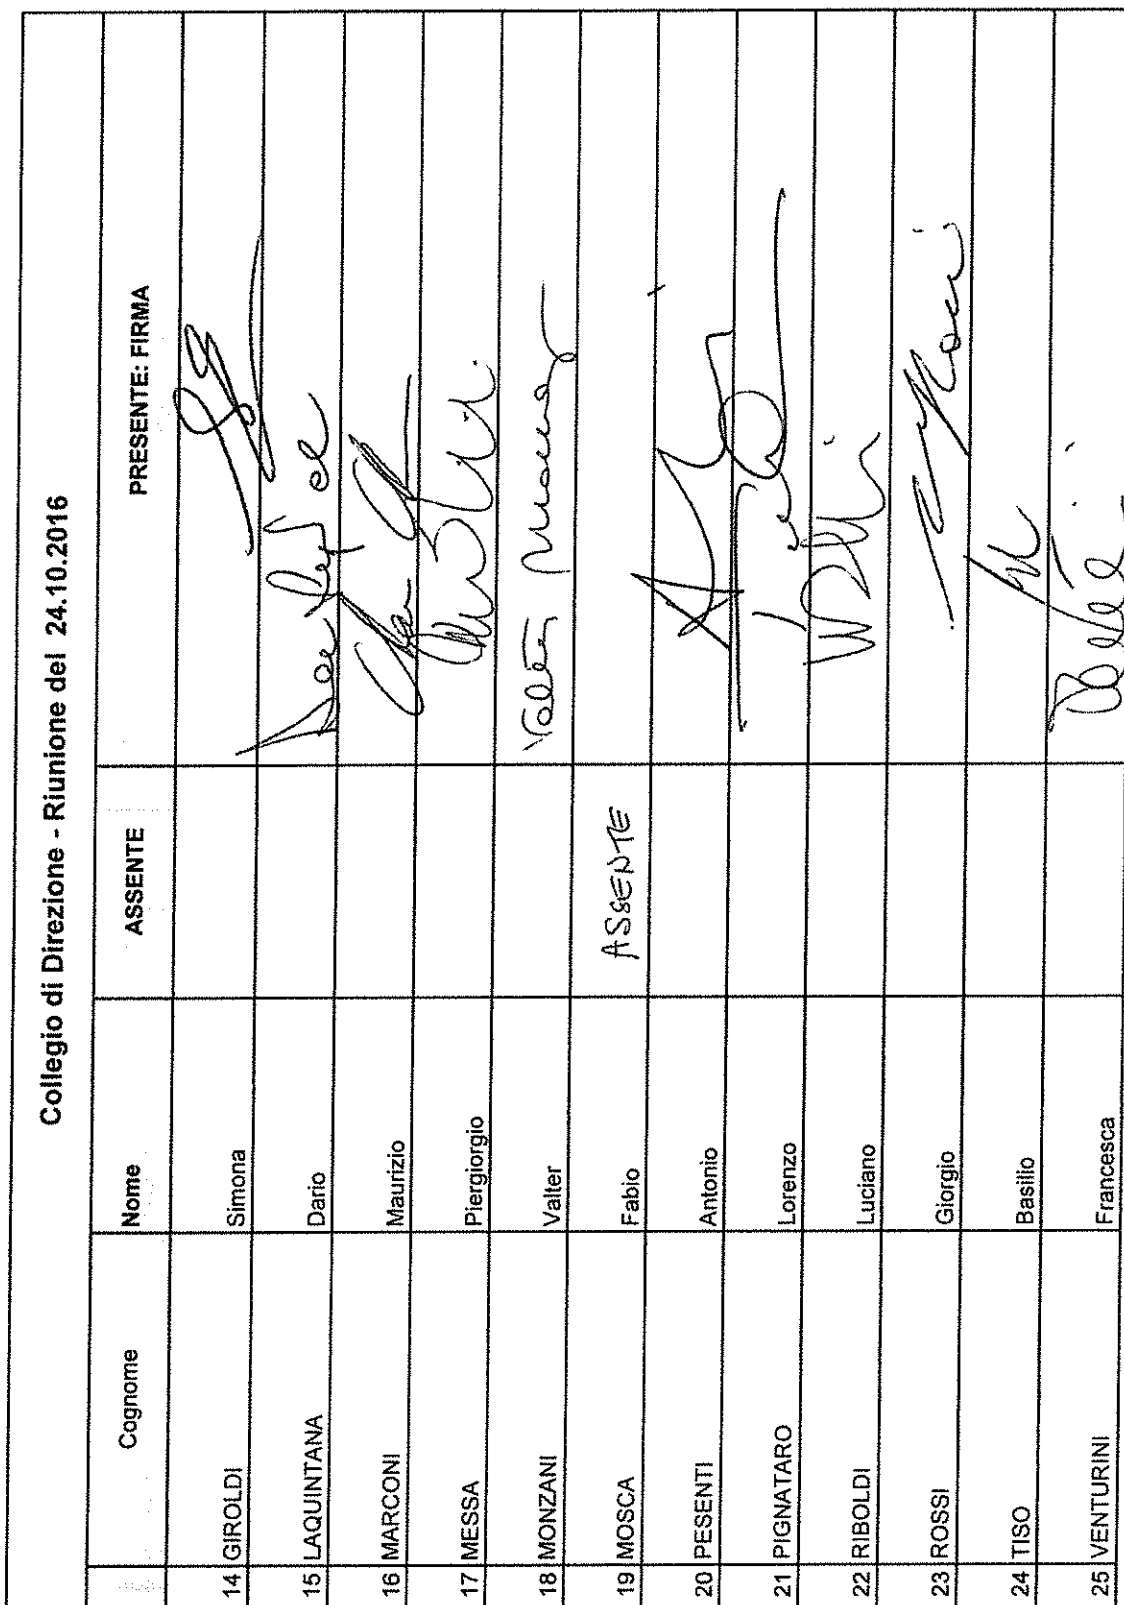 Collegio di Direzione - Riunione del 24.10.2016
Cognome Nome ASSENTE PRESENTE: FIRMA
14 GIROLDI Simona
15 LAQUINTANA Dario
16 MARCONI Maurizio
17 MESSA Piergiorgio
18 MONZANI Valter Valter Monzani
19 MOSCA Fabio ASSENTE
20 PESENTI Antonio
21 PIGNATARO Lorenzo
22 RIBOLDI Luciano
23 ROSSI Giorgio
24 TISO Basilio
25 VENTURINI Francesca